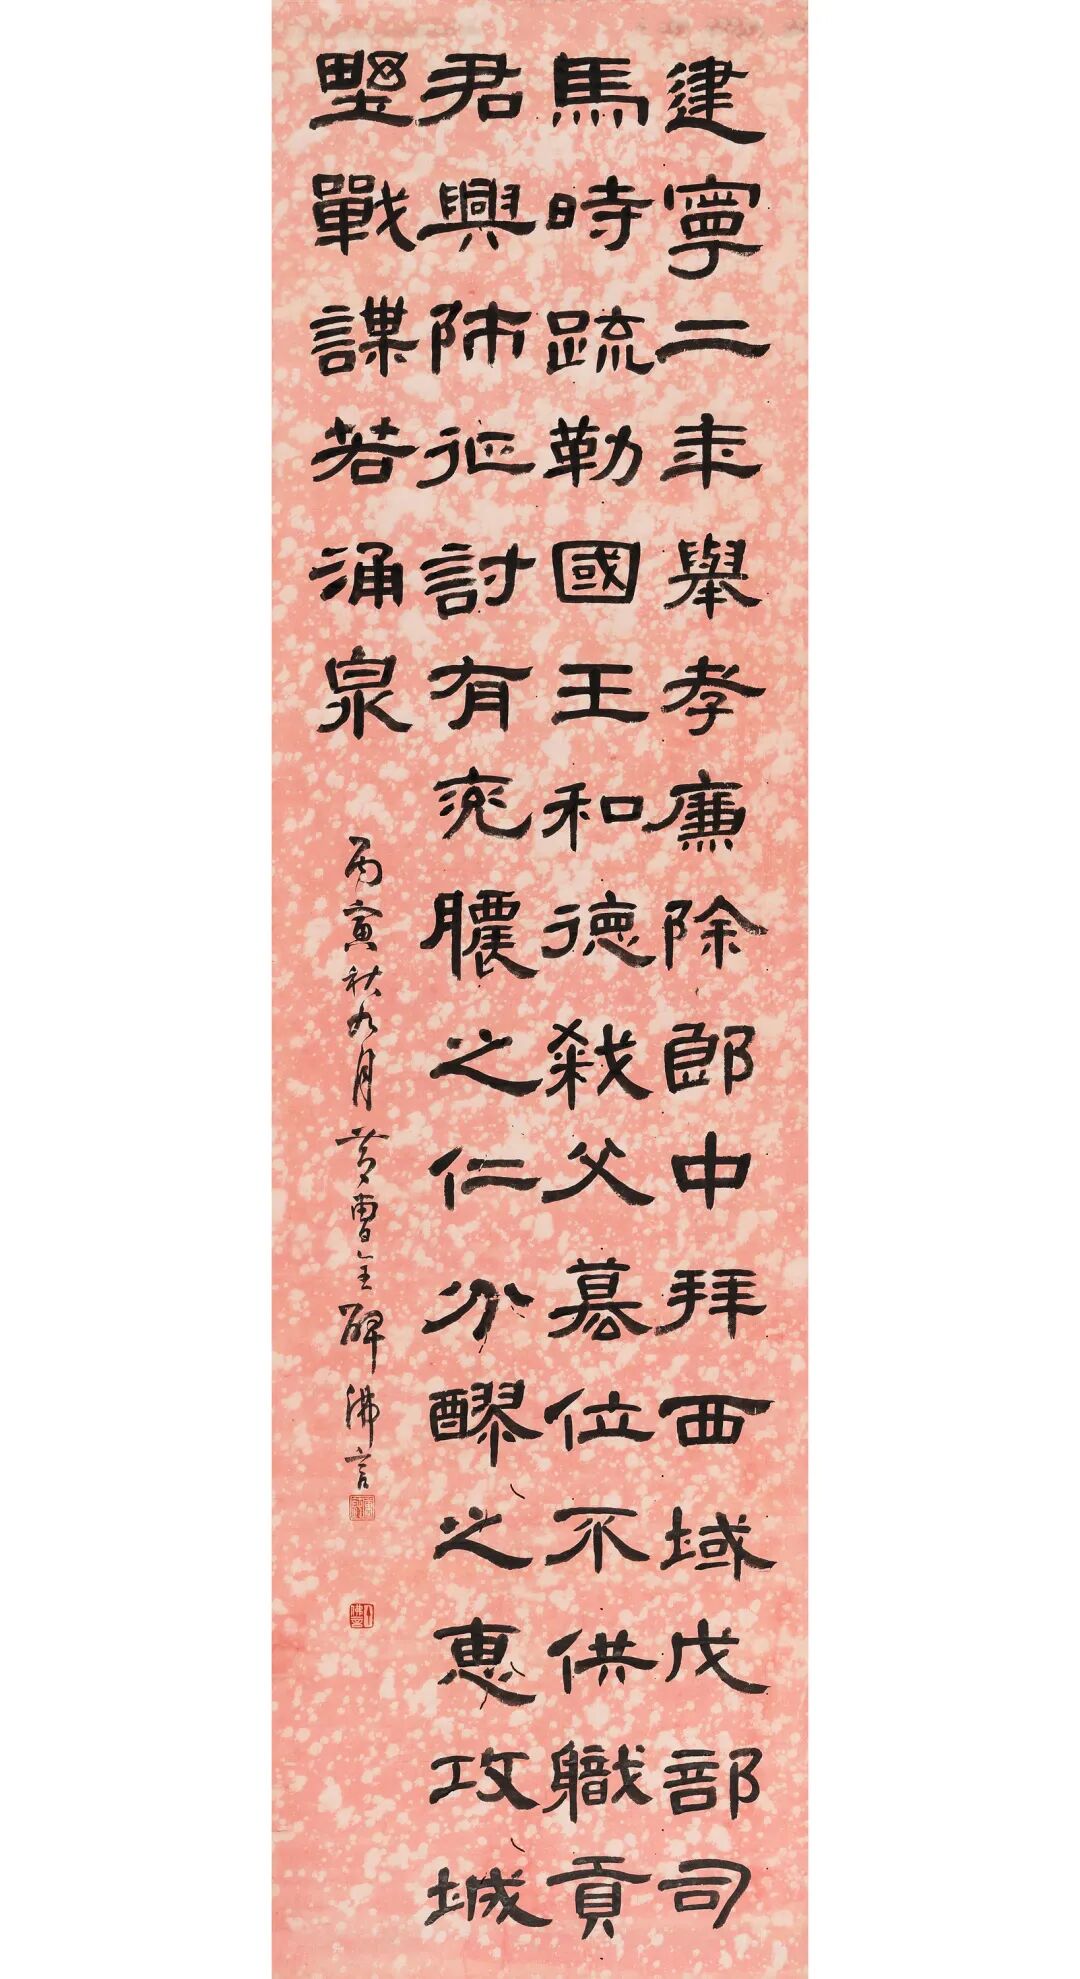 建寧二年舉孝廉除郎中拜西域戊部司
馬時疏勒國王和德弒父篡位不供職貢
君興師征討有兖膿之仁分醪之惠攻城
野戰謀若涌泉
丙寅秋九月節曹全碑 佛言